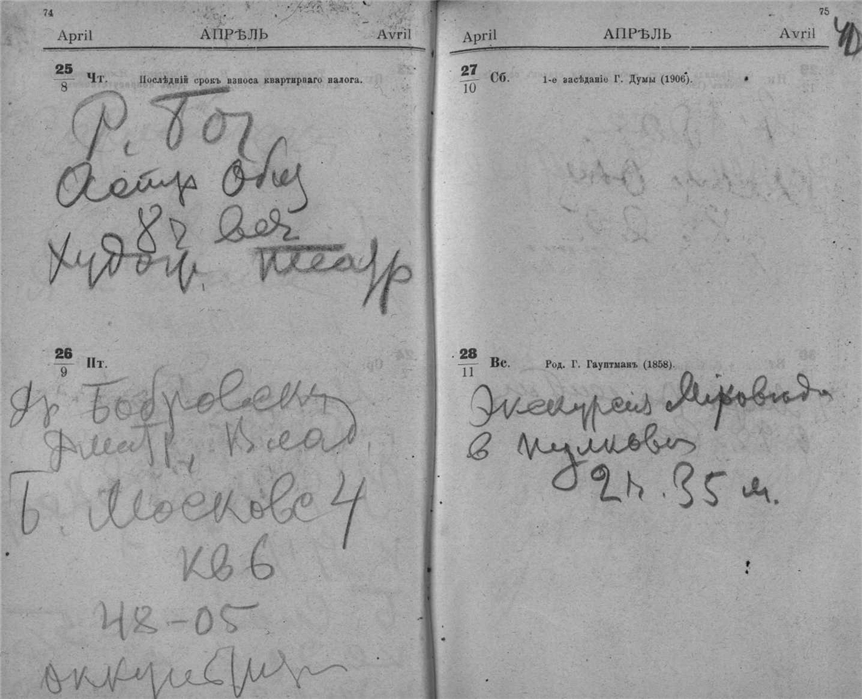 74
April АПРѢЛЬ Avril
25/8 Чт. Послѣдній срокъ взноса квартирнаго налога.
Р. Бог
Астр Общ
8 ч веч
Худож. театр
26/9 Пт.
Др Бобровск
Дмитр, Влад.
Б. Московс 4
кв 6
48-05
75
April АПРѢЛЬ Avril
40
27/10 Сб. 1-е засѣданіе Г. Думы (1906).
28/11 Вс. Род. Г. Гауптманъ (1858).
Экскурсия Мировед
в Пулково
2 ч. 35 м.